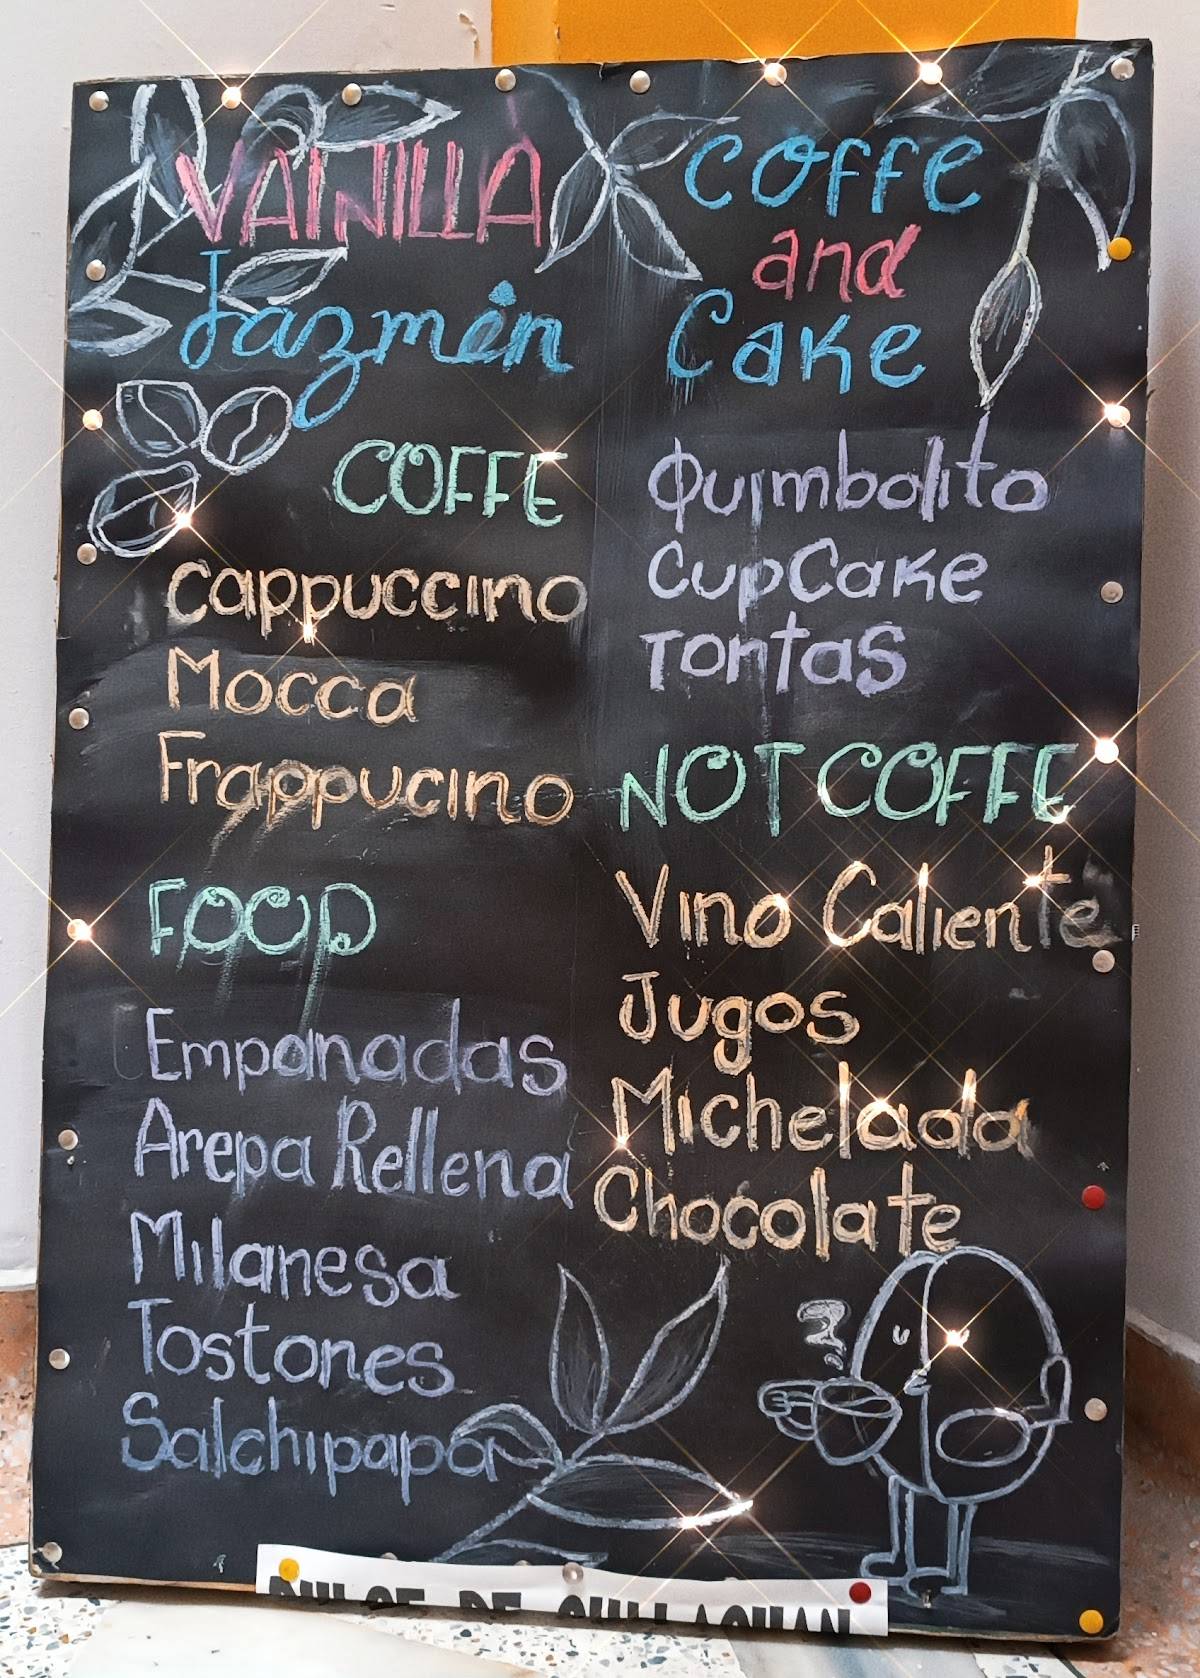 VAINILLA
Jazmín
COFFE
Cappuccino
Mocca
Frappucino
FOOD
Empanadas
Arepa Rellena
Milanesa
Tostones
Salchipapa
COFFE
and
Cake
Quimbolito
CupCake
Tortas
NOT COFFE
Vino Caliente
Jugos
Michelada
Chocolate
DULCE DE